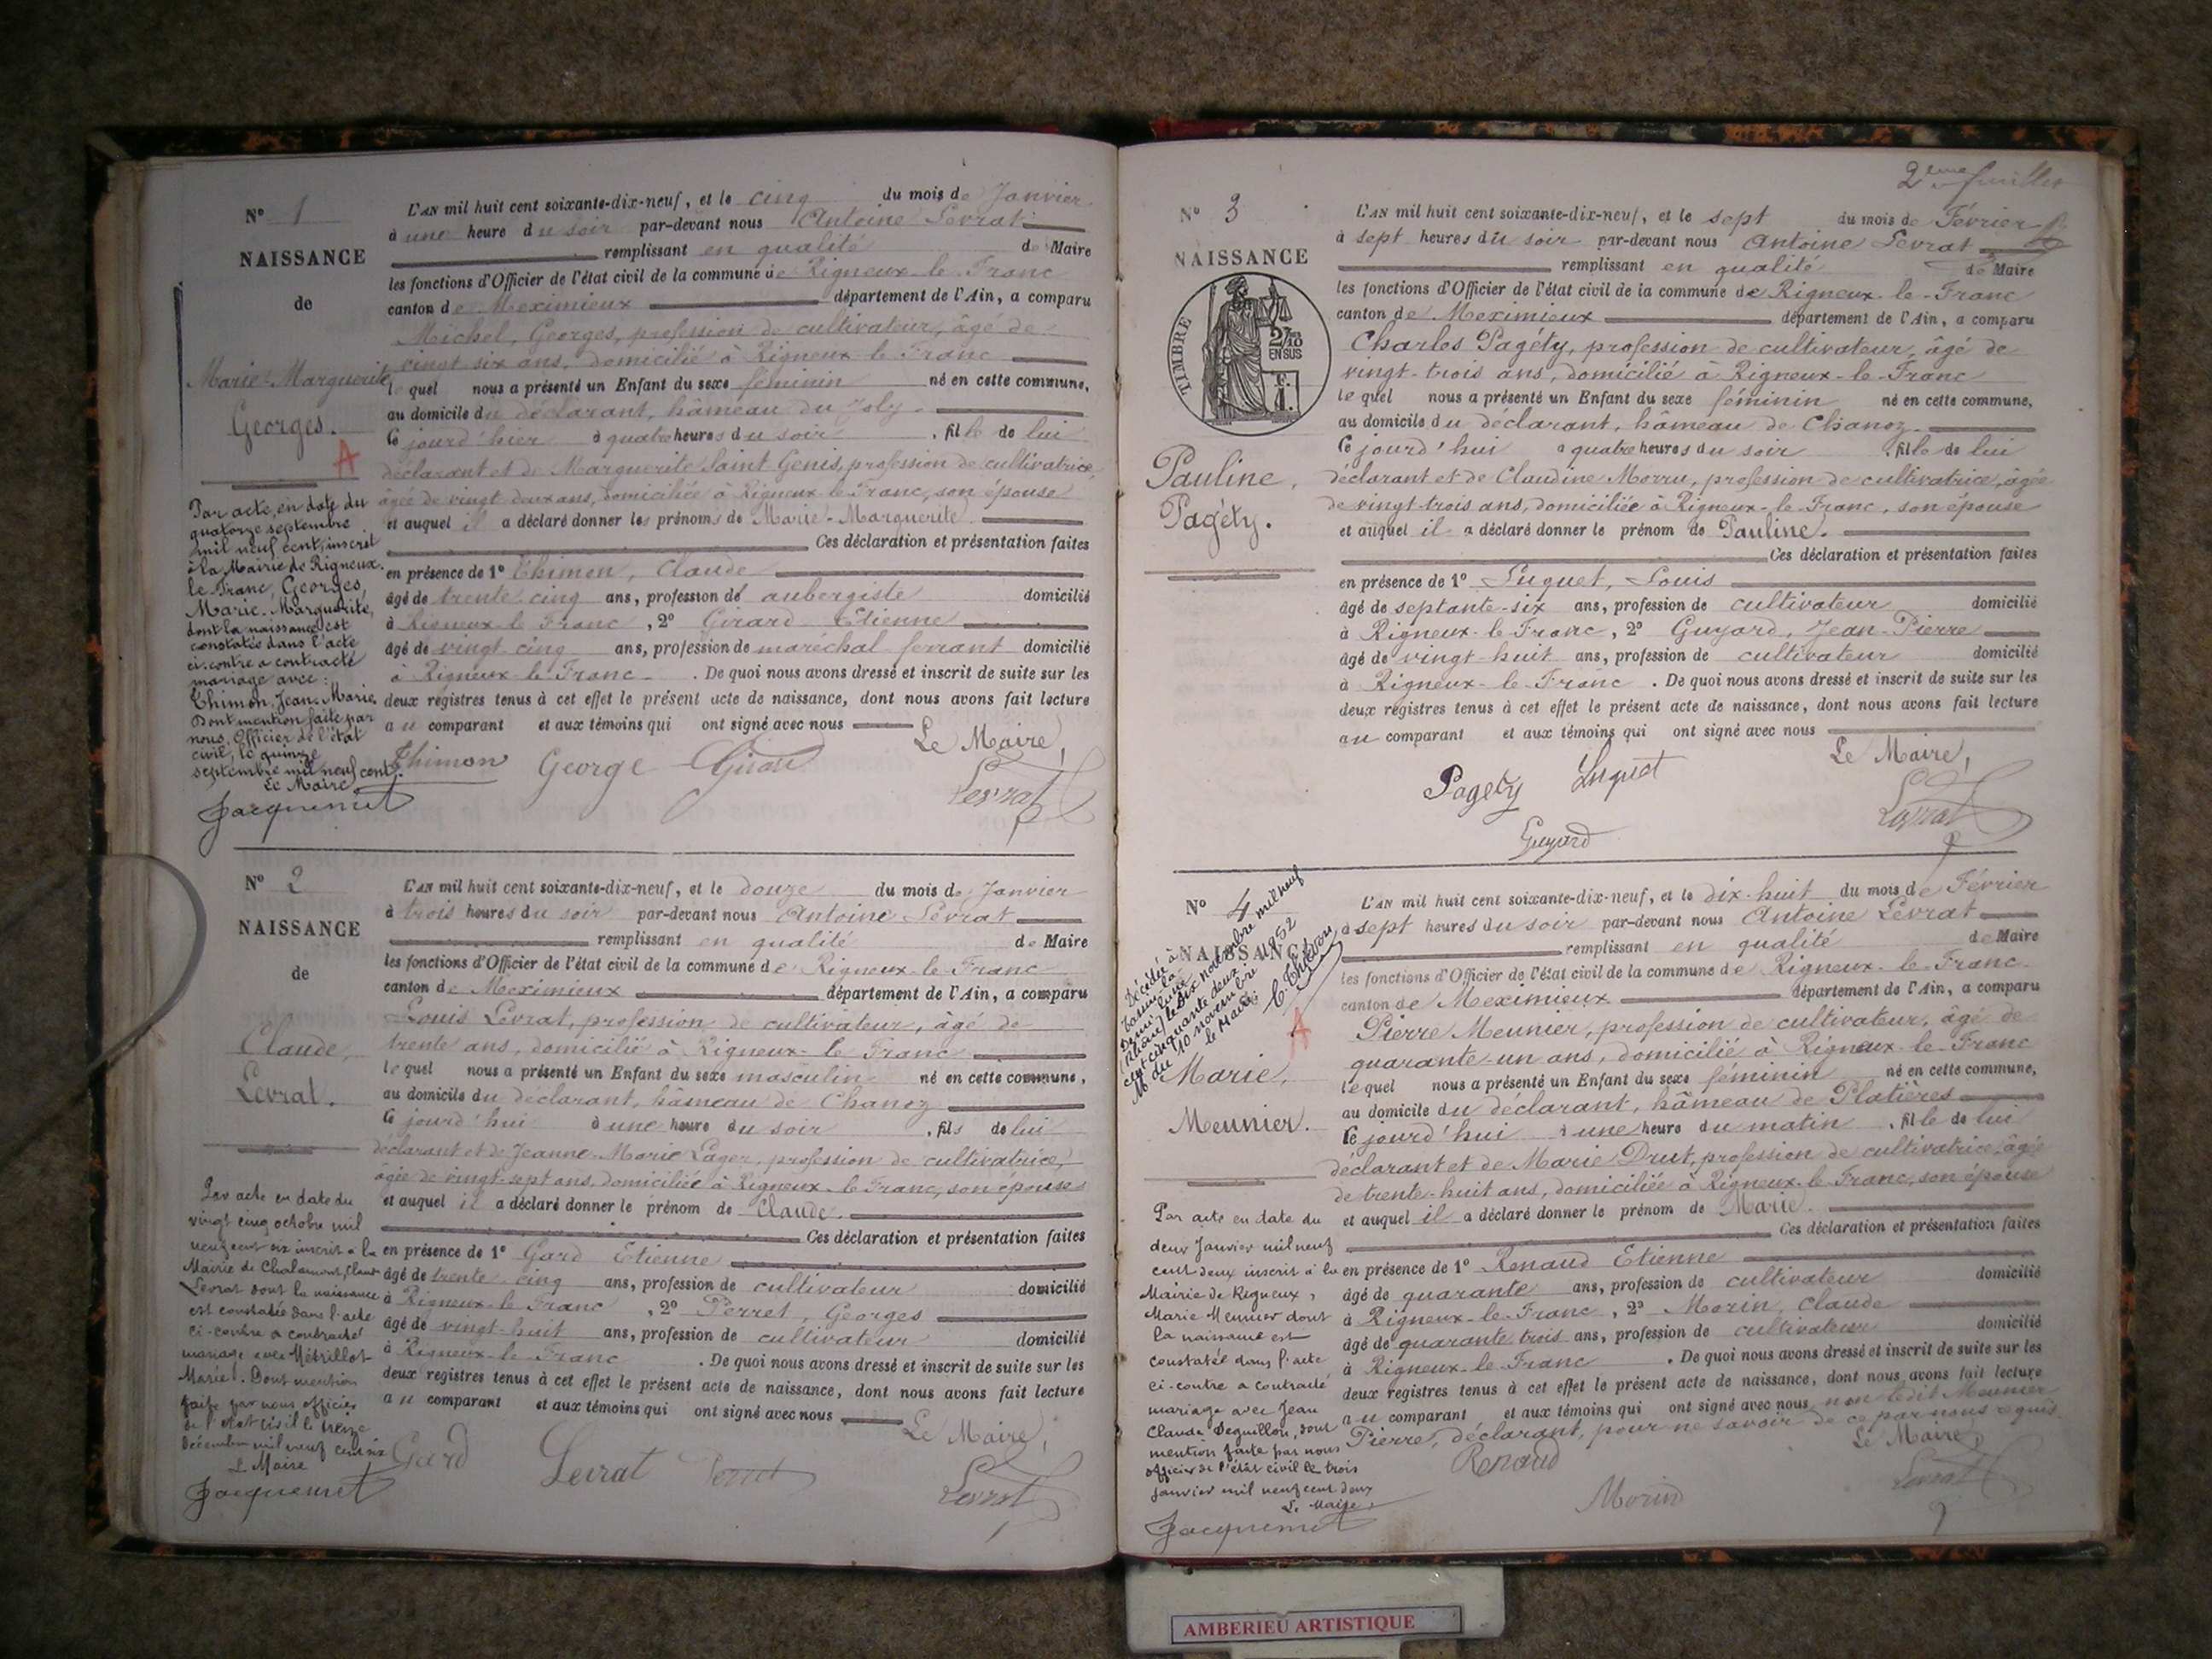 N° 1
NAISSANCE
de
Marie-Marguerite
Georges.
A
L'AN mil huit cent soixante-dix-neuf, et le cinq du mois de Janvier
à une heure du soir par-devant nous Antoine Levrat
remplissant en qualité de Maire
les fonctions d'Officier de l'état civil de la commune de Rigneux-le-Franc
canton de Meximieux département de l'Ain, a comparu
Michel, Georges, profession de cultivateur, âgé de
vingt six ans, domicilié à Rigneux-le-Franc
lequel nous a présenté un Enfant du sexe féminin né en cette commune,
au domicile du déclarant, hâmeau du Joly.
Ce jourd'hier à quatre heures du soir, fille de lui
déclarant et de Marguerite Saint Genis, profession de cultivatrice,
âgée de vingt deux ans, domiciliée à Rigneux-le-Franc, son épouse
et auquel il a déclaré donner les prénoms de Marie-Marguerite.
Ces déclaration et présentation faites
en présence de 1° Thimon, Claude
âgé de trente-cinq ans, profession d' aubergiste domicilié
à Rigneux-le-Franc, 2° Girard Etienne
âgé de vingt-cinq ans, profession de maréchal ferrant domicilié
à Rigneux-le-Franc. De quoi nous avons dressé et inscrit de suite sur les
deux registres tenus à cet effet le présent acte de naissance, dont nous avons fait lecture
au comparant et aux témoins qui ont signé avec nous
Le Maire,
Thimon George Girard Levrat
Par acte, en date du
quatorze septembre
mil neuf cent, inscrit
à la Mairie de Rigneux-
le-Franc, Georges,
Marie-Marguerite,
dont la naissance est
constatée dans l'acte
ci-contre a contracté
mariage avec:
Thimon, Jean-Marie.
Dont mention faite par
nous, Officier de l'état
civil, le quinze
septembre mil neuf cent.
Le Maire
Jacquemet
N° 2
NAISSANCE
de
Claude,
Levrat.
L'AN mil huit cent soixante-dix-neuf, et le douze du mois de Janvier
à trois heures du soir par-devant nous Antoine Levrat
remplissant en qualité de Maire
les fonctions d'Officier de l'état civil de la commune de Rigneux-le-Franc
canton de Meximieux département de l'Ain, a comparu
Louis Levrat, profession de cultivateur, âgé de
trente ans, domicilié à Rigneux-le-Franc
lequel nous a présenté un Enfant du sexe masculin né en cette commune,
au domicile du déclarant, hâmeau de Chanoz
Ce jourd'hui à une heure du soir, fils de lui
déclarant et de Jeanne-Marie Lager, profession de cultivatrice,
âgée de vingt-sept ans, domiciliée à Rigneux-le-Franc, son épouse
et auquel il a déclaré donner le prénom de Claude.
Ces déclaration et présentation faites
en présence de 1° Gard Etienne
âgé de trente-cinq ans, profession de cultivateur domicilié
à Rigneux-le-Franc, 2° Perret, Georges
âgé de vingt-huit ans, profession de cultivateur domicilié
à Rigneux-le-Franc. De quoi nous avons dressé et inscrit de suite sur les
deux registres tenus à cet effet le présent acte de naissance, dont nous avons fait lecture
au comparant et aux témoins qui ont signé avec nous
Le Maire,
Gard Levrat Perret Levrat
Par acte en date du
vingt cinq octobre mil
neuf cent six inscrit à la
Mairie de Chalamont, Claude
Levrat dont la naissance
est constatée dans l'acte
ci-contre a contracté
mariage avec Métrillot
Marie. Dont mention
faite par nous officier
de l'état civil le treize
décembre mil neuf cent six
Le Maire
Jacquemet
2ème feuillet
N° 3
NAISSANCE
TIMBRE
2/10
EN SUS
Pauline,
Pagéty.
L'AN mil huit cent soixante-dix-neuf, et le sept du mois de Février
à sept heures du soir par-devant nous Antoine Levrat
remplissant en qualité de Maire
les fonctions d'Officier de l'état civil de la commune de Rigneux-le-Franc
canton de Meximieux département de l'Ain, a comparu
Charles Pagéty, profession de cultivateur, âgé de
vingt-trois ans, domicilié à Rigneux-le-Franc
lequel nous a présenté un Enfant du sexe féminin né en cette commune,
au domicile du déclarant, hâmeau de Chanoz.
Ce jourd'hui à quatre heures du soir, fille de lui
déclarant et de Claudine Morru, profession de cultivatrice, âgée
de vingt-trois ans, domiciliée à Rigneux-le-Franc, son épouse
et auquel il a déclaré donner le prénom de Pauline.
Ces déclaration et présentation faites
en présence de 1° Luquet, Louis
âgé de septante-six ans, profession de cultivateur domicilié
à Rigneux-le-Franc, 2° Guyard, Jean-Pierre
âgé de vingt-huit ans, profession de cultivateur domicilié
à Rigneux-le-Franc. De quoi nous avons dressé et inscrit de suite sur les
deux registres tenus à cet effet le présent acte de naissance, dont nous avons fait lecture
au comparant et aux témoins qui ont signé avec nous
Le Maire,
Pagéty Luquet Levrat
Guyard
N° 4
NAISSANCE
Marie,
Meunier.
A
Décédée à
(Rhône) le dix novembre mil neuf
cent cinquante deux.
du 10 novembre 1952
le Maire:
L'AN mil huit cent soixante-dix-neuf, et le dix-huit du mois de Février
à sept heures du soir par-devant nous Antoine Levrat
remplissant en qualité de Maire
les fonctions d'Officier de l'état civil de la commune de Rigneux-le-Franc
canton de Meximieux département de l'Ain, a comparu
Pierre Meunier, profession de cultivateur, âgé de
quarante-un ans, domicilié à Rigneux-le-Franc
lequel nous a présenté un Enfant du sexe féminin né en cette commune,
au domicile du déclarant, hâmeau de Platières
Ce jourd'hui à une heure du matin, fille de lui
déclarant et de Marie Drut, profession de cultivatrice, âgée
de trente-huit ans, domiciliée à Rigneux-le-Franc, son épouse
et auquel il a déclaré donner le prénom de Marie.
Ces déclaration et présentation faites
en présence de 1° Renaud Etienne
âgé de quarante ans, profession de cultivateur domicilié
à Rigneux-le-Franc, 2° Morin, Claude
âgé de quarante trois ans, profession de cultivateur domicilié
à Rigneux-le-Franc. De quoi nous avons dressé et inscrit de suite sur les
deux registres tenus à cet effet le présent acte de naissance, dont nous avons fait lecture
au comparant et aux témoins qui ont signé avec nous non ledit Meunier
Pierre, déclarant, pour ne savoir de ce par nous requis
Le Maire,
Renaud Morin Levrat
Par acte en date du
deux Janvier mil neuf
cent deux inscrit à la
Mairie de Rigneux,
Marie Meunier dont
la naissance est
constatée dans l'acte
ci-contre a contracté
mariage avec Jean
Claude Deguillon, dont
mention faite par nous
officier de l'état civil le trois
janvier mil neuf cent deux
Le Maire,
Jacquemet
AMBERIEU ARTISTIQUE